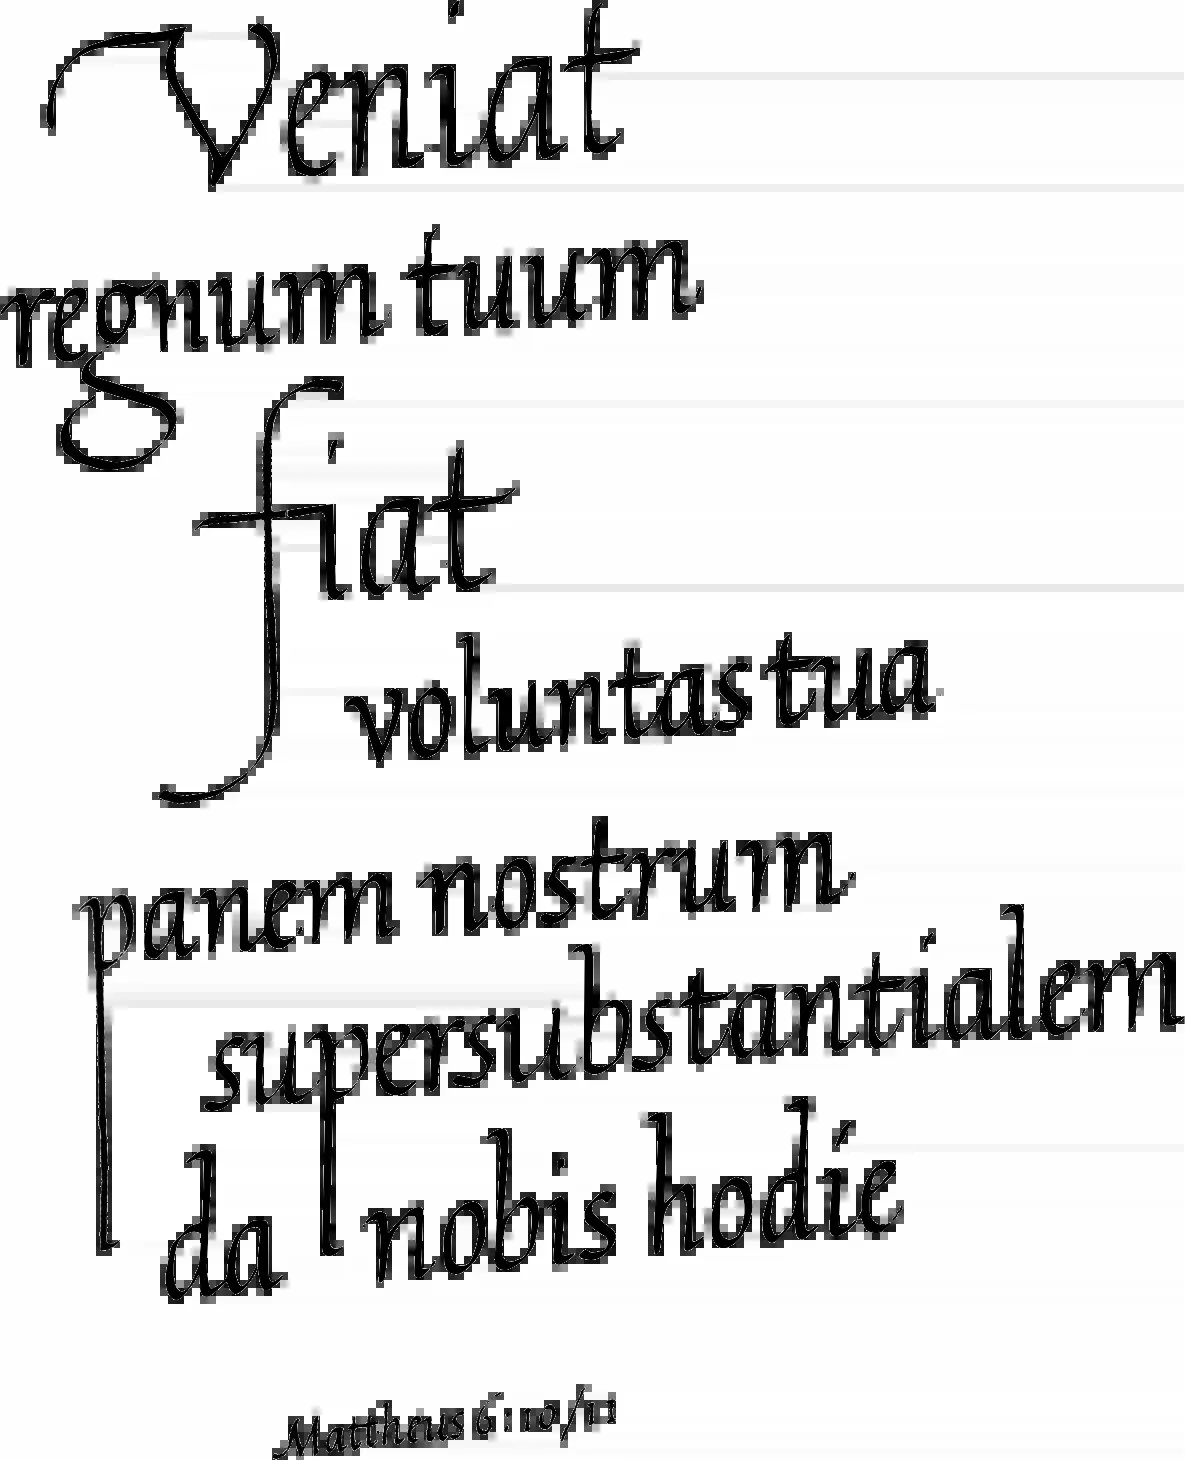 Veniat
regnum tuum
fiat
voluntas tua
panem nostrum
supersubstantialem
da nobis hodie
Mattheus 6:10/11